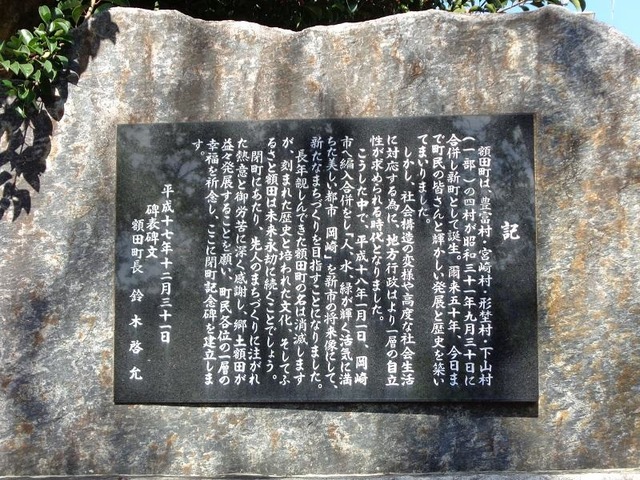 記
額田町は、豊富村・宮崎村・形埜村・下山村
(一部)の四村が昭和三十一年九月三十日に
合併し新町として誕生。爾来五十年、今日ま
で町民の皆さんと輝かしい発展と歴史を築い
てまいりました。
しかし、社会構造の変様や高度な社会生活
に対応する為に、地方行政はより一層の自立
性が求められる時代となりました。
こうした中で、平成十八年一月一日、岡崎
市へ編入合併をし「人、水、緑が輝く活気に満
ちた美しい都市 岡崎」を新市の将来像にして、
新たなまちづくりを目指すことになりました。
長年親しんできた額田町の名は消滅します
が、刻まれた歴史と培われた文化、そしてふ
るさと額田は未来永劫に続くことでしょう。
閉町にあたり、先人のまちづくりに注がれ
た熱意と御労苦に深く感謝し、郷土額田が
益々発展することを願い、町民各位の一層の
幸福を祈念し、ここに閉町記念碑を建立しま
す。
平成十七年十二月三十一日
碑表碑文
額田町長 鈴木啓允